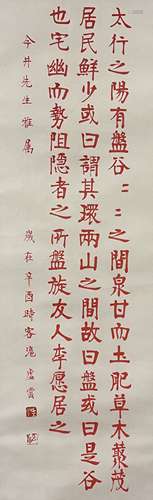 太行之陽有盤谷〻〻之間泉甘而土肥草木叢茂
居民鮮少或曰謂其環兩山之間故曰盤或曰是谷
也宅幽而勢阻隱者之所盤旋友人李愿居之
今井先生雅屬
歲在辛酉時客滬上